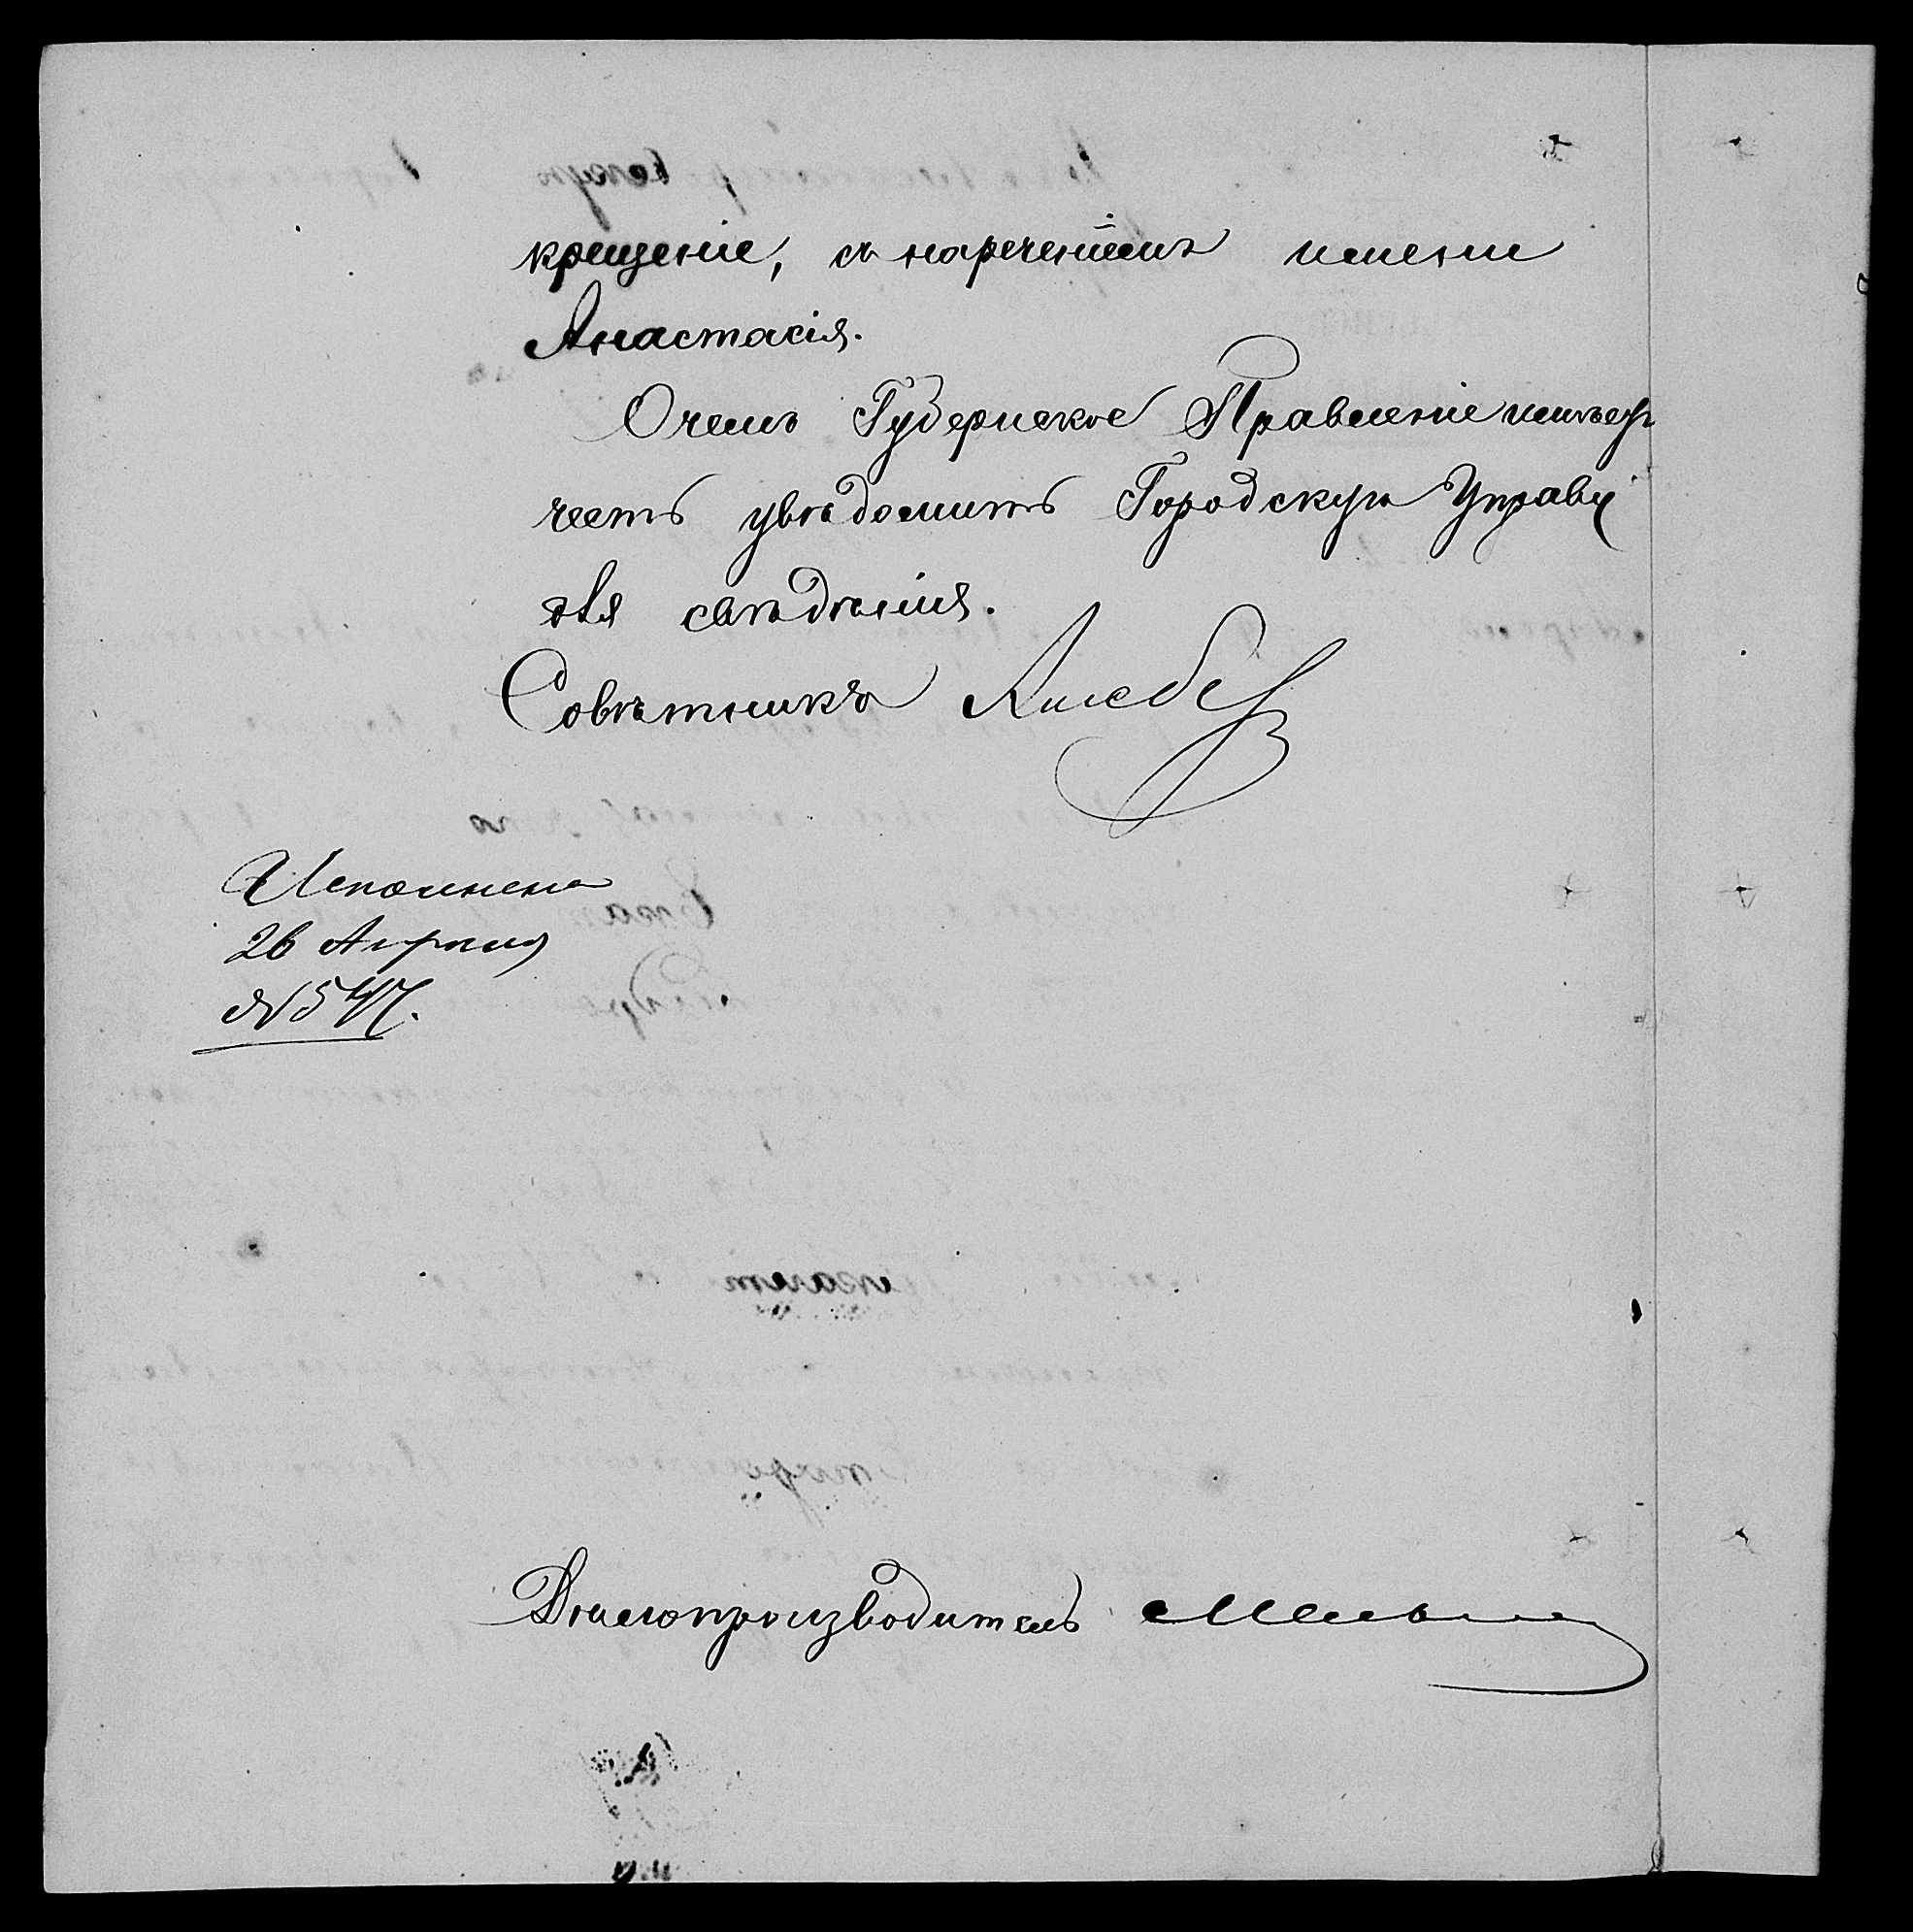 крещеніе, съ нареченіемъ имени
Анастасія.
О чемъ Губернское Правленіе имѣетъ
честь увѣдомить Городскую Управу
для свѣдѣнія.
Совѣтникъ
Исполнено
26 Апрѣля
№ 547.
Дѣлопроизводитель